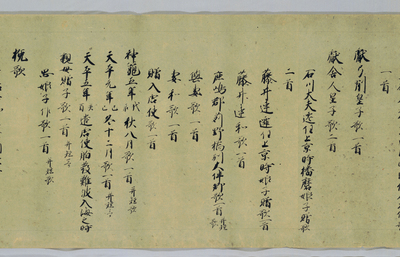 一首
献弓削皇子歌一首
献舎人皇子歌二首
石川大夫遷任上京時播磨娘子贈歌
二首
藤井連遷任上京時娘子贈歌一首
藤井連和歌一首
鹿嶋郡苅野橋別大伴卿歌一首并短歌
与妻歌一首
妻和歌一首
贈入唐使歌一首
神龜五年戊辰秋八月歌一首并短歌
天平元年己巳冬十二月歌一首并短歌
天平五年癸酉遣唐使舶發難波入海之時
親母贈子歌一首并短歌
思娘子作歌一首并短歌
挽歌